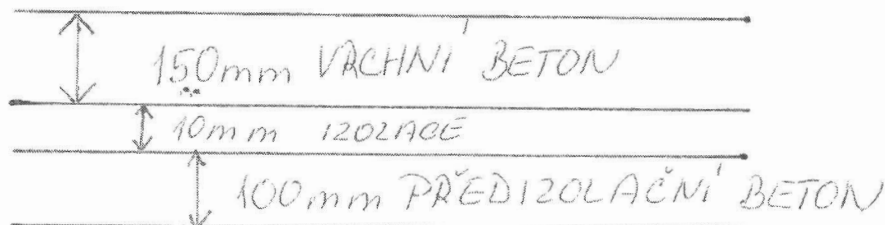 150mm VRCHNÍ BETON
10mm IZOLACE
100mm PŘEDIZOLAČNÍ BETON